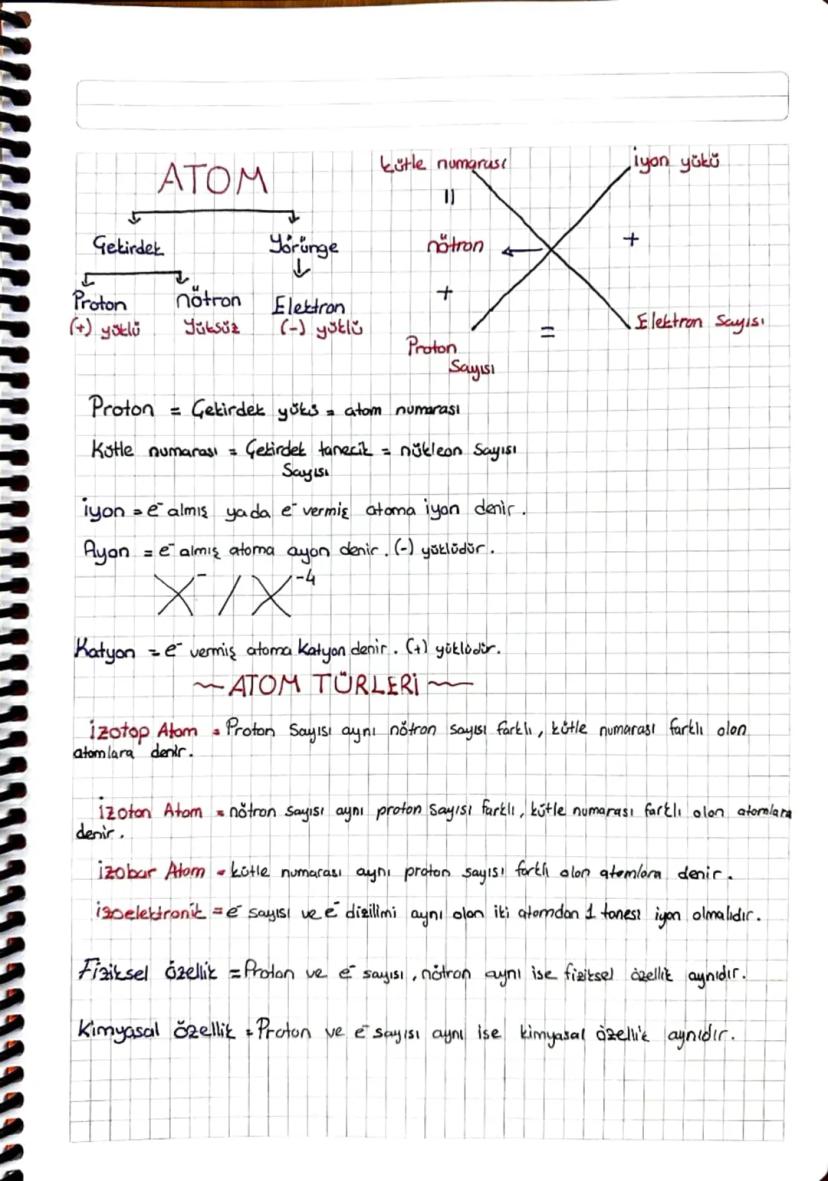 ATOM
Çekirdek Yörünge
Proton nötron Elektron
(+) yüklü Yüksüz (-) yüklü
kütle numarası iyon yükü
=
nötron +
+
Proton = Elektron Sayısı
Sayısı
Proton = Çekirdek yükü = atom numarası
Kütle numarası = Çekirdek tanecik = nükleon Sayısı
Sayısı
iyon = e⁻ almış yada e⁻ vermiş atoma iyon denir.
Ayon = e⁻ almış atoma ayon denir. (-) yüklüdür.
X⁻ / X⁻⁴
Katyon = e⁻ vermiş atoma Katyon denir. (+) yüklüdür.
~ ATOM TÜRLERİ ~
izotop Atom = Proton Sayısı aynı nötron sayısı farklı, kütle numarası farklı olan
atomlara denir.
izoton Atom = nötron sayısı aynı proton sayısı farklı, kütle numarası farklı olan atomlara
denir.
izobar Atom = kütle numarası aynı proton sayısı farklı olan atomlara denir.
izoelektronik = e⁻ sayısı ve e⁻ dizilimi aynı olan iki atomdan 1 tanesi iyon olmalıdır.
Fiziksel özellik = Proton ve e⁻ sayısı, nötron aynı ise fiziksel özellik aynıdır.
Kimyasal özellik = Proton ve e⁻ sayısı aynı ise kimyasal özellik aynıdır.